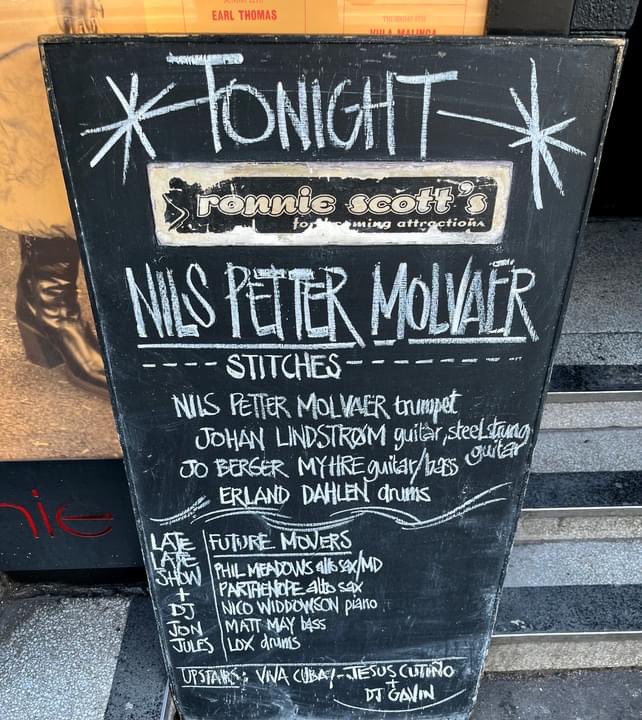 EARL THOMAS
TONIGHT
ronnie scott's
forthcoming attractions
NILS PETTER MOLVAER
STITCHES
NILS PETTER MOLVAER trumpet
JOHAN LINDSTRØM guitar, steel strung guitar
JO BERGER MYHRE guitar/bass
ERLAND DAHLEN drums
LATE LATE SHOW + DJ JON JULES
FUTURE MOVERS
PHIL MEADOWS alto sax/MD
PARTHENOPE alto sax
NICO WIDDOWSON piano
MATT MAY bass
LOX drums
UPSTAIRS: VIVA CUBA! - JESUS CUTIÑO
+
DJ GAVIN
nie